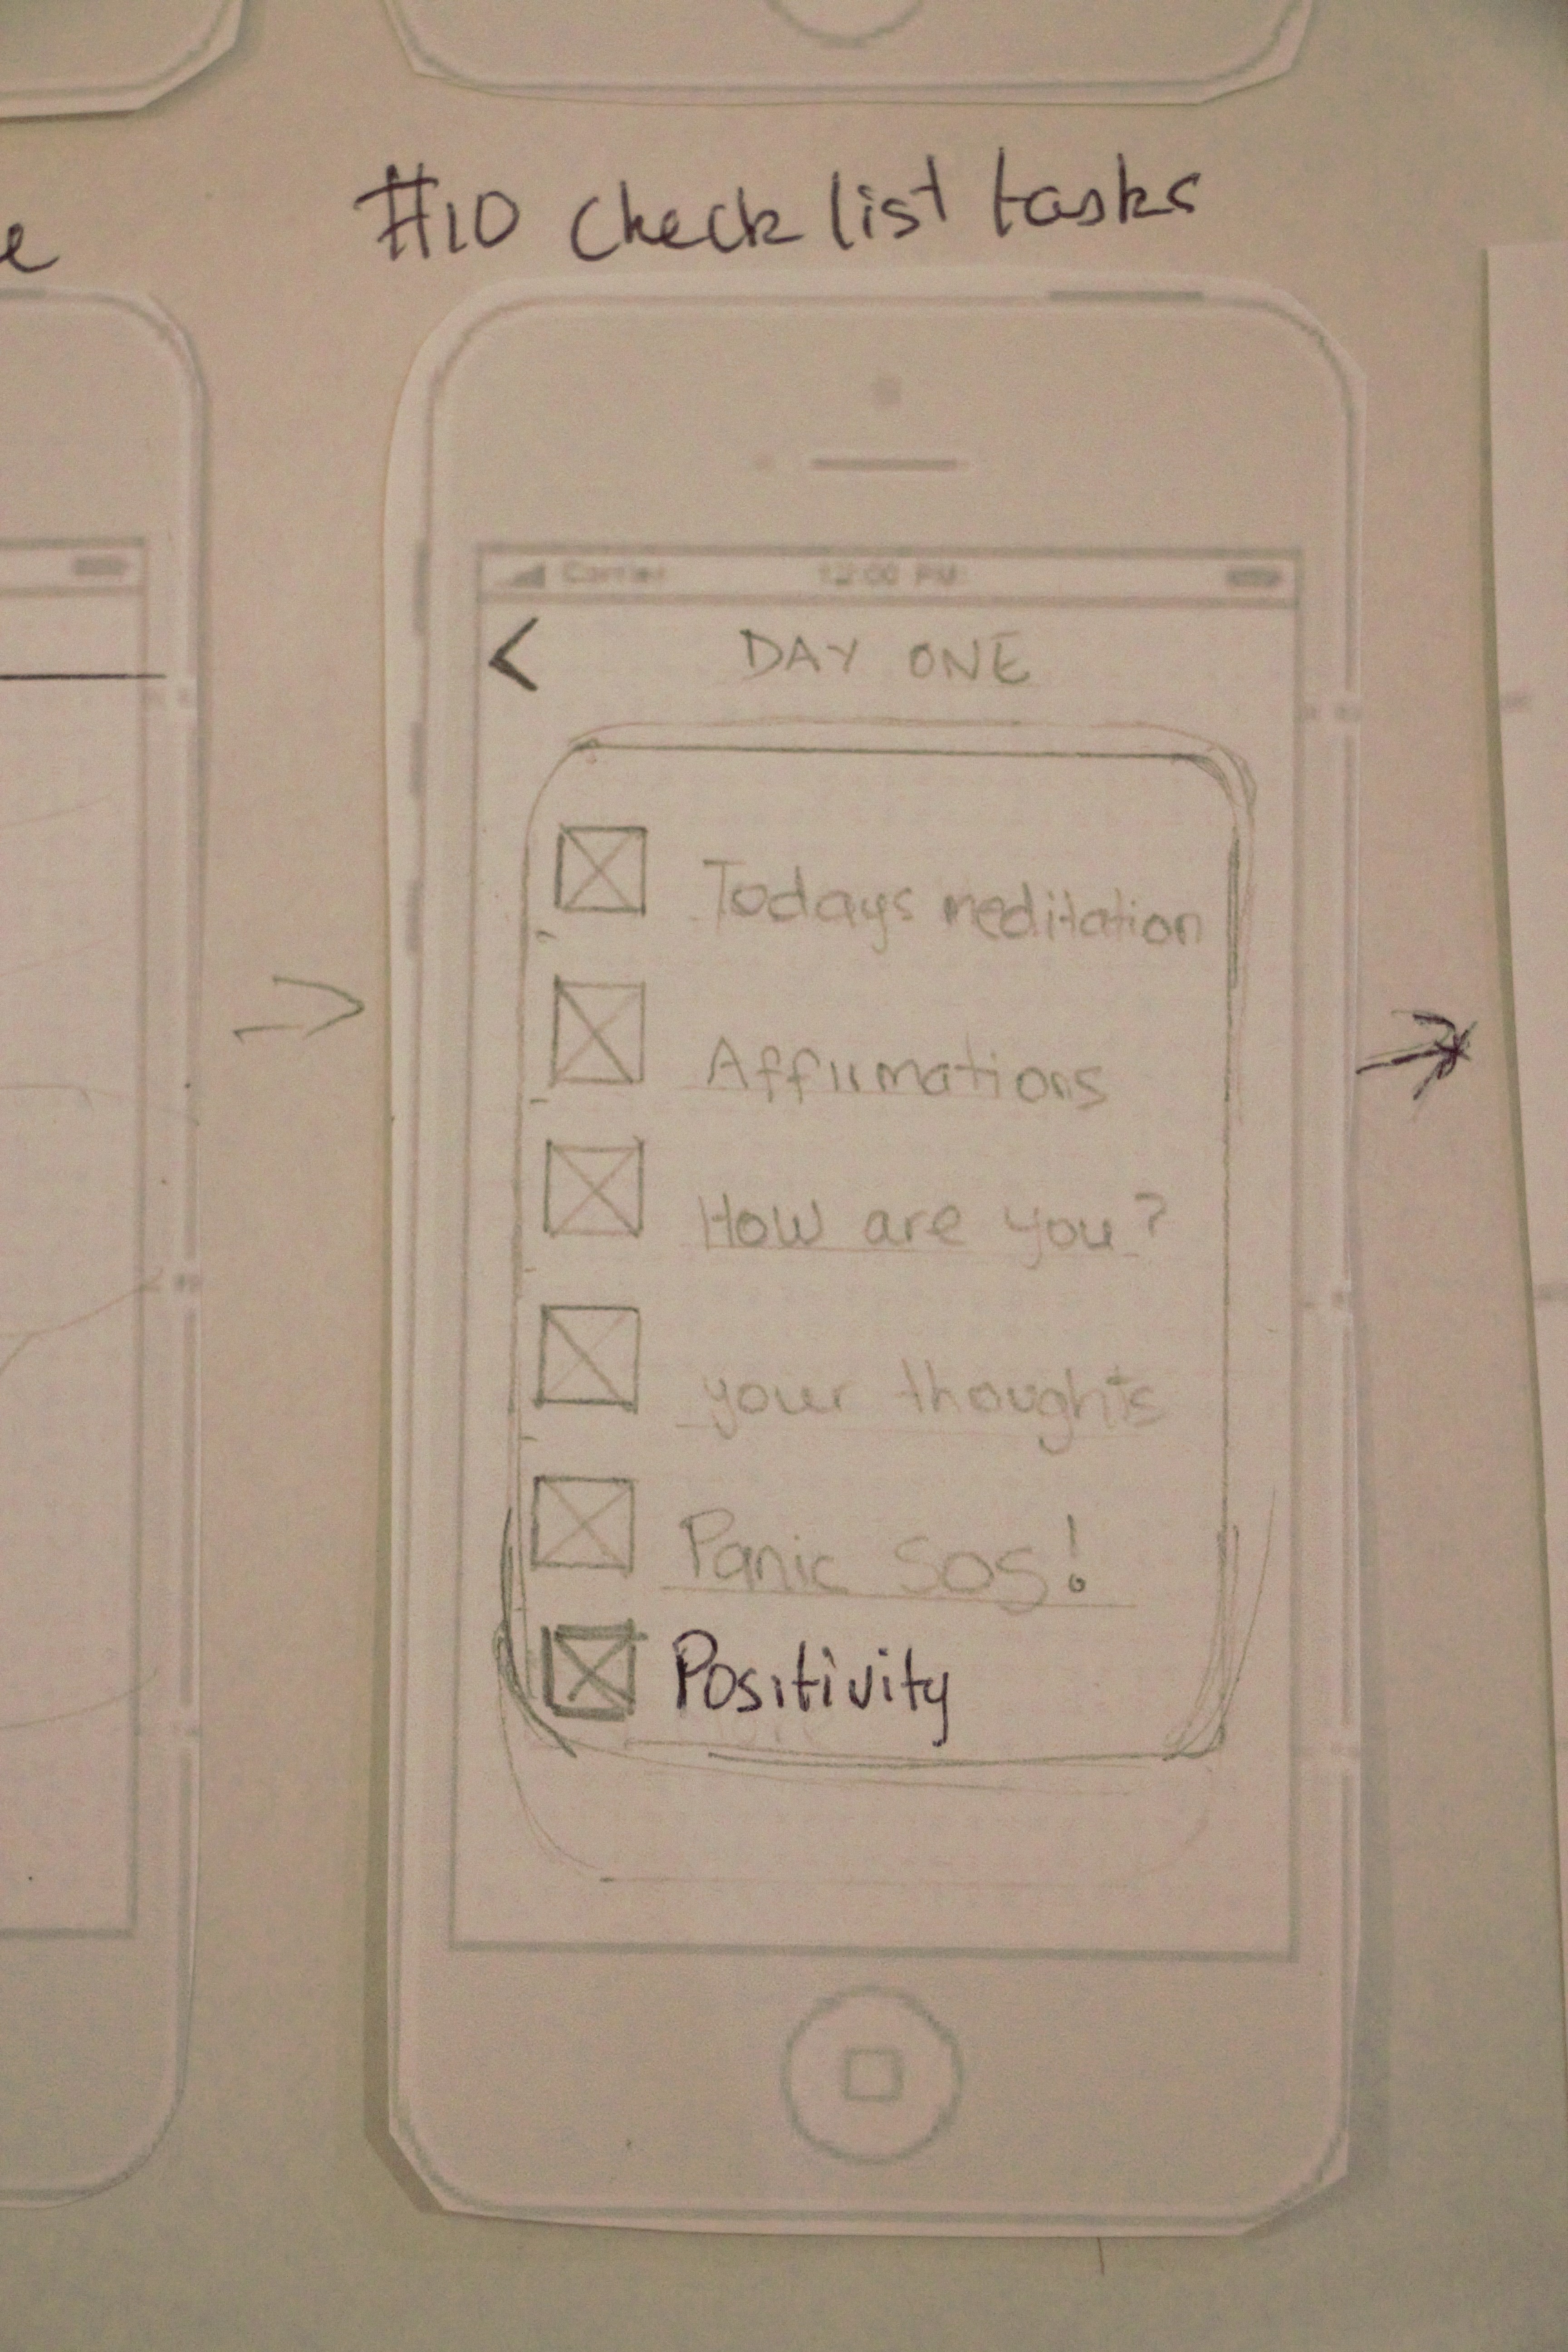 #10 Check list tasks
Carrier 12:00 PM
< DAY ONE
Todays meditation
Affirmations
How are you?
your thoughts
Panic SOS!
Positivity